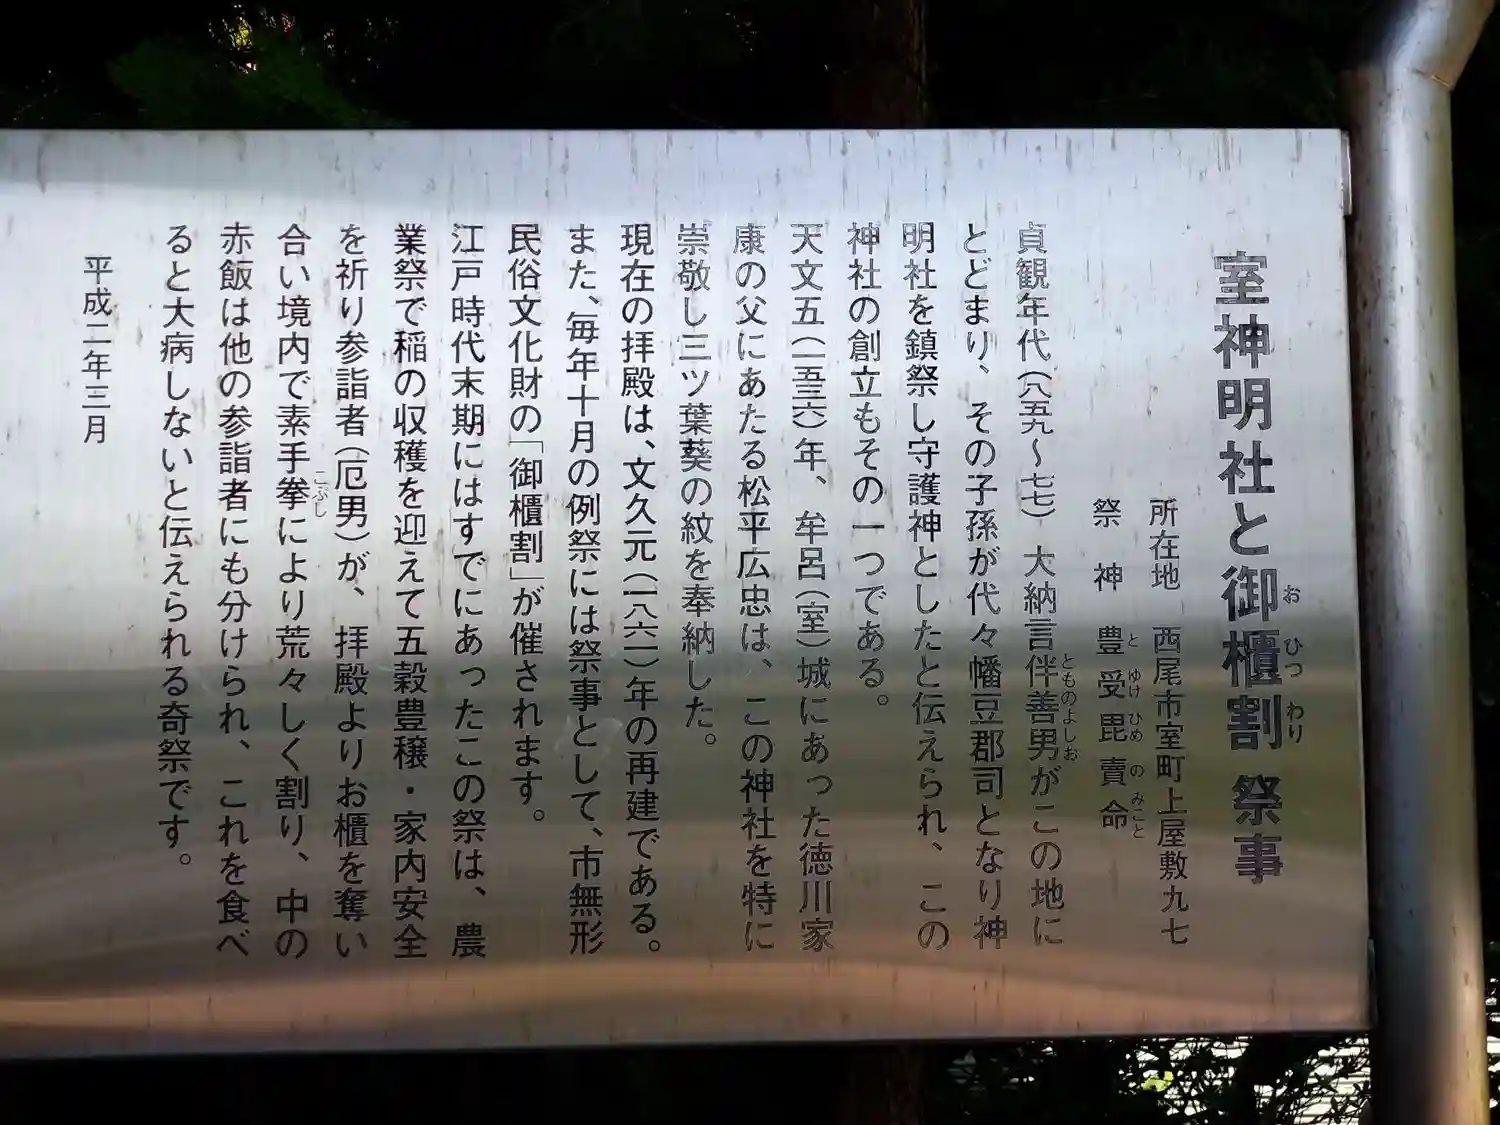 室神明社と御櫃割 祭事
お ひつ わり
所在地 西尾市室町上屋敷九七
祭神 豊受毘賣命
と ゆけ ひめ の みこと
貞観年代(八五九〜七七) 大納言伴善男がこの地に
とものよしお
とどまり、その子孫が代々幡豆郡司となり神
明社を鎮祭し守護神としたと伝えられ、この
神社の創立もその一つである。
天文五(一五三六)年、牟呂(室)城にあった徳川家
康の父にあたる松平広忠は、この神社を特に
崇敬し三ツ葉葵の紋を奉納した。
現在の拝殿は、文久元(一八六一)年の再建である。
また、毎年十月の例祭には祭事として、市無形
民俗文化財の「御櫃割」が催されます。
江戸時代末期にはすでにあったこの祭は、農
業祭で稲の収穫を迎えて五穀豊穣・家内安全
を祈り参詣者(厄男)が、拝殿よりお櫃を奪い
合い境内で素手拳により荒々しく割り、中の
こぶし
赤飯は他の参詣者にも分けられ、これを食べ
ると大病しないと伝えられる奇祭です。
平成二年三月